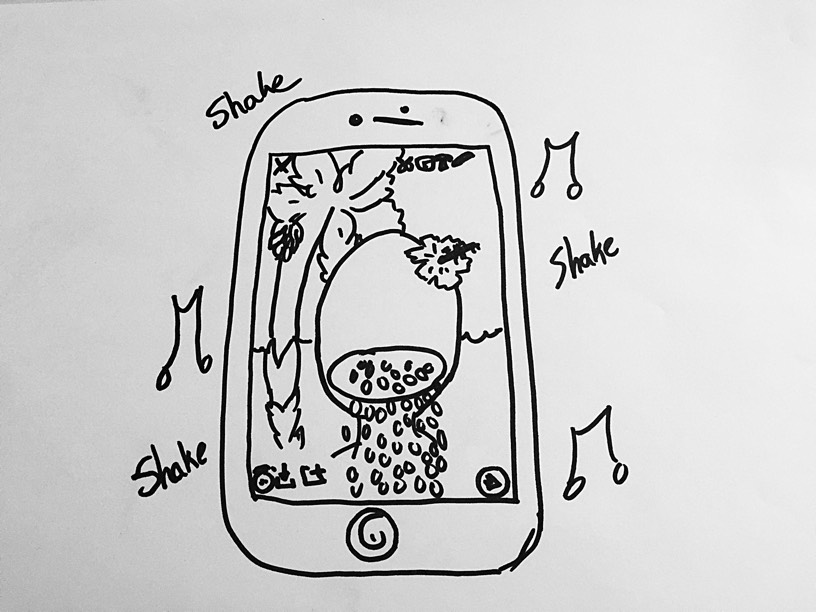 Shake
Shake
Shake